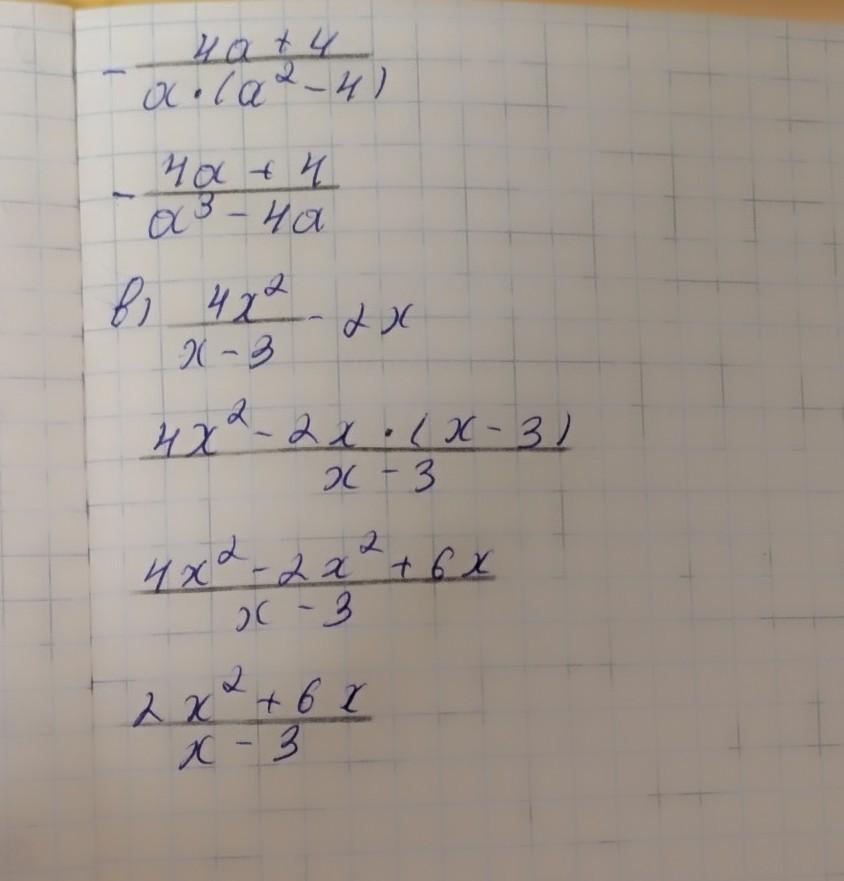 - (4a + 4) / (a · (a² - 4))
- (4a + 4) / (a³ - 4a)
в) 4x² / (x - 3) - 2x
(4x² - 2x · (x - 3)) / (x - 3)
(4x² - 2x² + 6x) / (x - 3)
(2x² + 6x) / (x - 3)